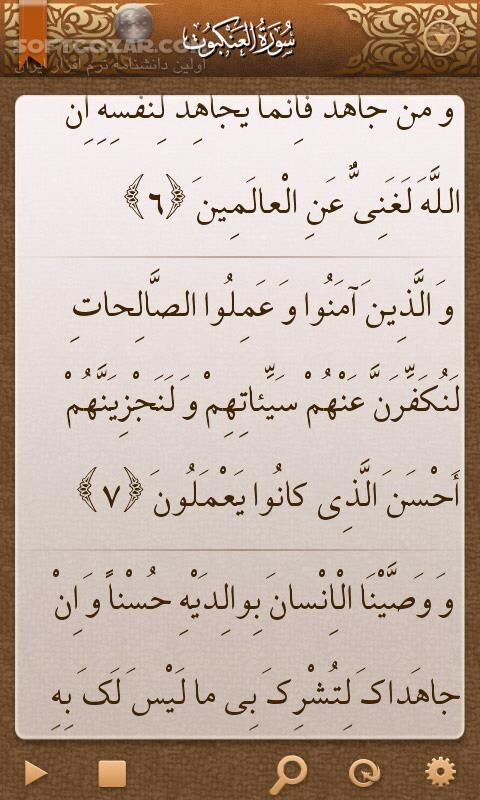 SOFTGOZAR.COM
اولین دانشنامه نرم افزار ایران
سُورَةُ العَنکبوت
وَ مَن جاهَدَ فَإِنَّما يُجاهِدُ لِنَفْسِهِ إِنَّ
اللَّهَ لَغَنِیٌّ عَنِ الْعالَمِينَ ﴿٦﴾
وَ الَّذِينَ آمَنُوا وَ عَمِلُوا الصَّالِحاتِ
لَنُكَفِّرَنَّ عَنْهُمْ سَيِّئاتِهِمْ وَ لَنَجْزِيَنَّهُمْ
أَحْسَنَ الَّذِی كانُوا يَعْمَلُونَ ﴿٧﴾
وَ وَصَّيْنَا الْإِنْسانَ بِوالِدَيْهِ حُسْناً وَ إِنْ
جاهَداکَ لِتُشْرِکَ بِی ما لَيْسَ لَکَ بِهِ